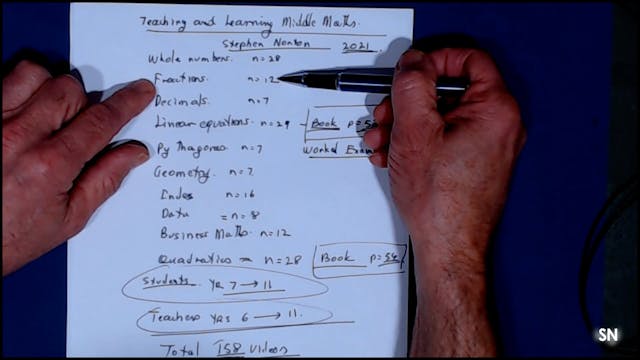 Teaching and Learning Middle Maths.
Stephen Norton 2021
Whole numbers. n=28
Fractions. n=12
Decimals. n=7
Linear equations. n=29 - Book p=50
Pythagoras n=7 Worked Exam
Geometry. n=7
Index n=16
Data = n=8
Business Maths. n=12
Quadratics = n=28 Book p=54
Students Yrs 7 → 11
Teachers Yrs 6 → 11.
Total 158 Videos
SN